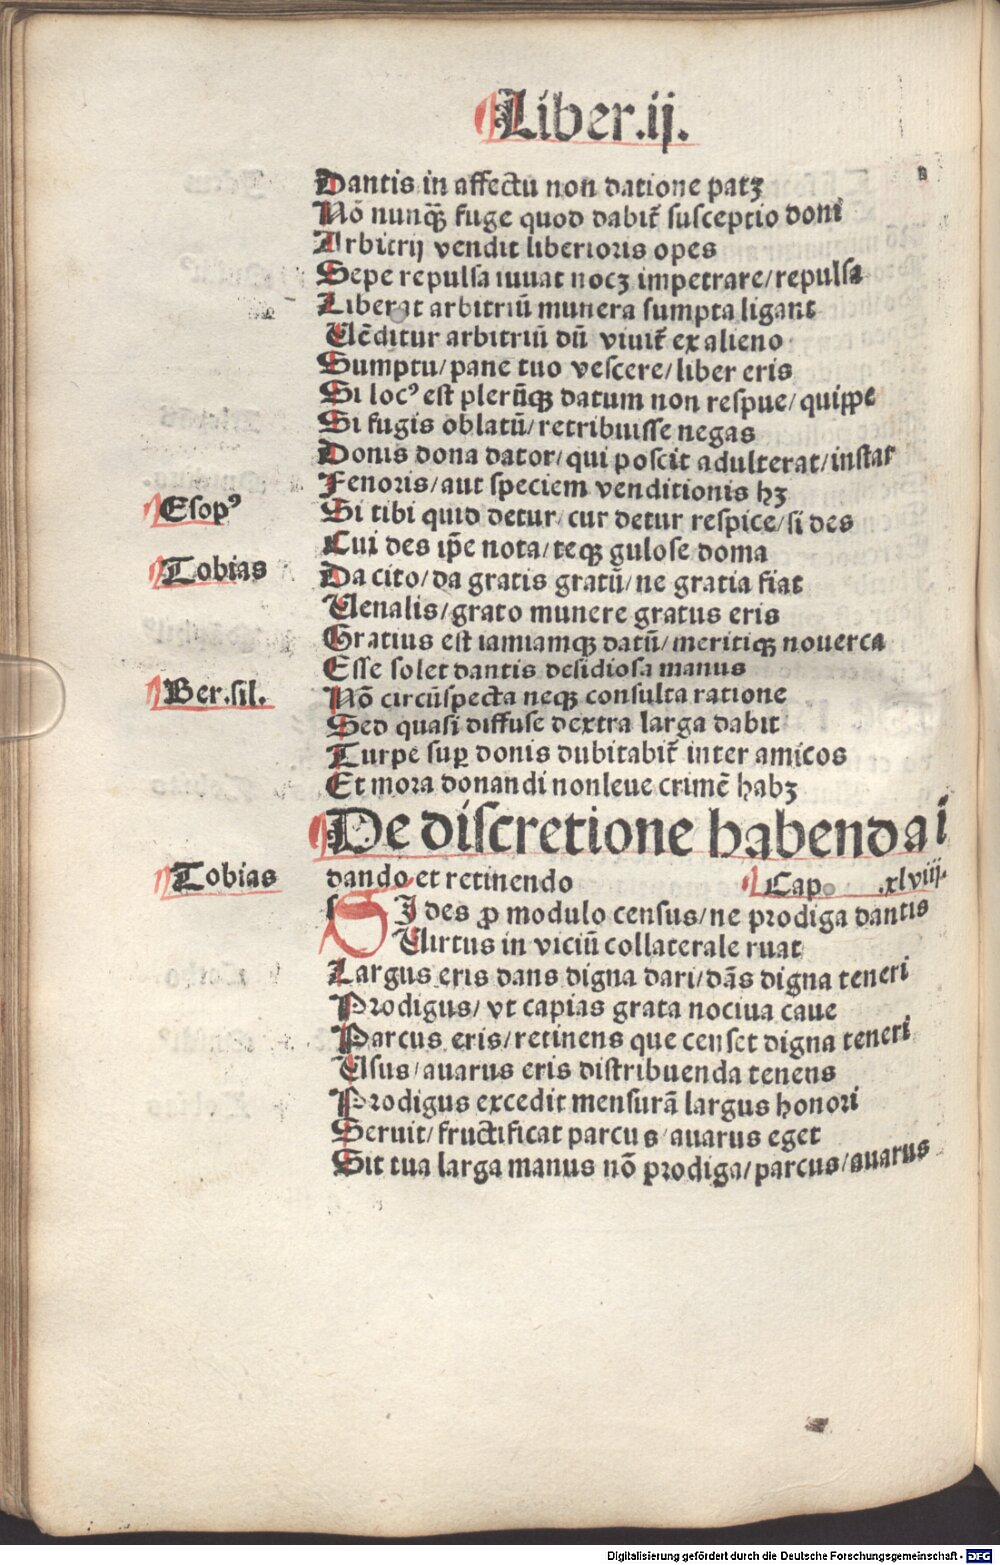 Liber.ij.
Dantis in affectu non datione patꝫ
Nō nunqᷓ fuge quod dabit᷑ susceptio doni
Arbitrij vendit liberioris opes
Sepe repulsa iuuat nocꝫ impetrare/repulsa
Liberat arbitriū munera sumpta ligant
Uēditur arbitriū dū viuit᷑ ex alieno
Sumptu/pane tuo vescere/liber eris
Si locꝰ est plerūqꝫ datum non respue/quippe
Si fugis oblatū/retribuisse negas
Donis dona dator/qui poscit adulterat/instar
Fenoris/aut speciem venditionis hꝫ
Esopꝰ
Si tibi quid detur/cur detur respice/si des
Cui des ip̄e nota/teqꝫ gulose doma
Tobias
Da cito/da gratis gratū/ne gratia fiat
Uenalis/grato munere gratus eris
Gratius est iamiamqꝫ datū/meritiqꝫ nouerca
Esse solet dantis desidiosa manus
Ber.sil.
Nō circūspecta neqꝫ consulta ratione
Sed quasi diffuse dextra larga dabit
Turpe suꝑ donis dubitabit᷑ inter amicos
Et mora donandi nonleue crimē habꝫ
De discretione habenda i
Tobias
dando et retinendo Cap. .xlviij.
SI des ꝓ modulo census/ne prodiga dantis
Uirtus in viciū collaterale ruat
Largus eris dans digna dari/dās digna teneri
Prodigus/vt capias grata nociua caue
Parcus eris/retinens que censet digna teneri
Usus/auarus eris distribuenda tenens
Prodigus excedit mensurā largus honori
Seruit/fructificat parcus/auarus eget
Sit tua larga manus nō prodiga/parcus/auarus
Digitalisierung gefördert durch die Deutsche Forschungsgemeinschaft - DFG